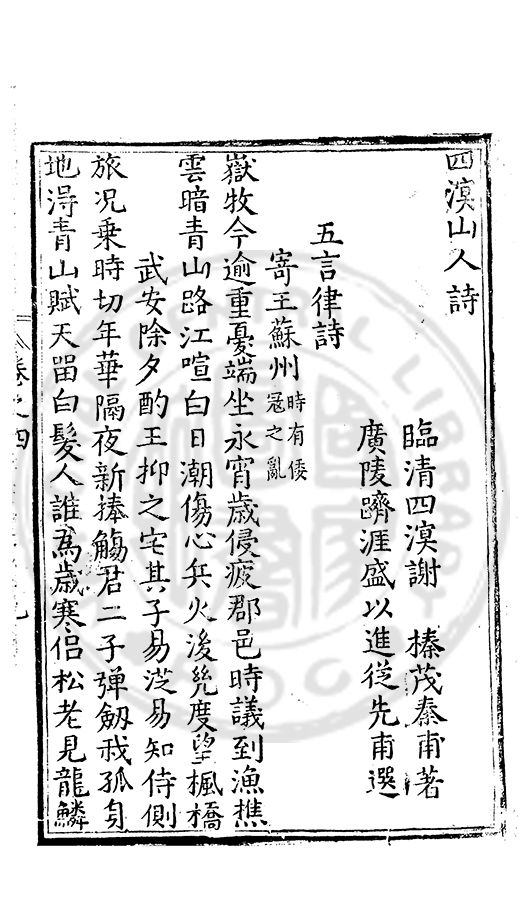 四溟山人詩
臨清四溟謝　榛茂秦甫著
廣陵躋涯盛以進從先甫選
五言律詩
寄王蘇州時有倭寇之亂
嶽牧今逾重憂端坐永宵歲侵疲郡邑時議到漁樵
雲暗青山路江喧白日潮傷心兵火後幾度望楓橋
武安除夕酌王抑之宅其子易從易知侍側
旅况乗時切年華隔夜新捧觴君二子彈劔我孤身
地淂青山賦天畱白髮人誰為歲寒侣松老見龍鱗
卷之四